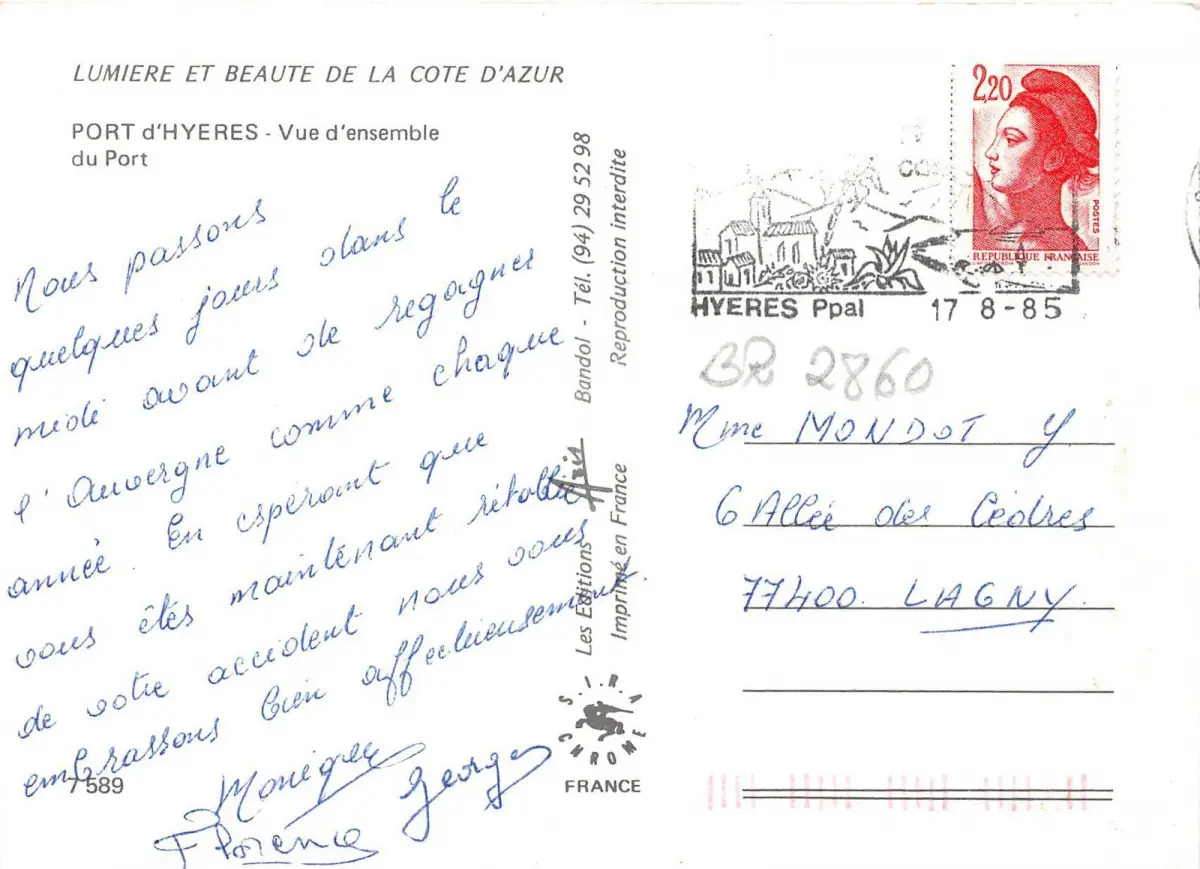 LUMIERE ET BEAUTE DE LA COTE D'AZUR
PORT d'HYERES - Vue d'ensemble
du Port
Nous passons
quelques jours dans le
midi avant de regagner
l'Auvergne comme chaque
année. En espérant que
vous êtes maintenant rétablie
de votre accident nous vous
embrassons bien affectueusement.
Monique Georges
Florence
7589
Les Editions Aris Bandol - Tél. (94) 29 52 98
Imprimé en France Reproduction interdite
S.I.R.A
CHROME
FRANCE
2,20
POSTES
REPUBLIQUE FRANÇAISE
HYERES Ppal 17 8-85
BR 2860
Mme MONDOT Y
6 Allée des Cèdres
77400. LAGNY.